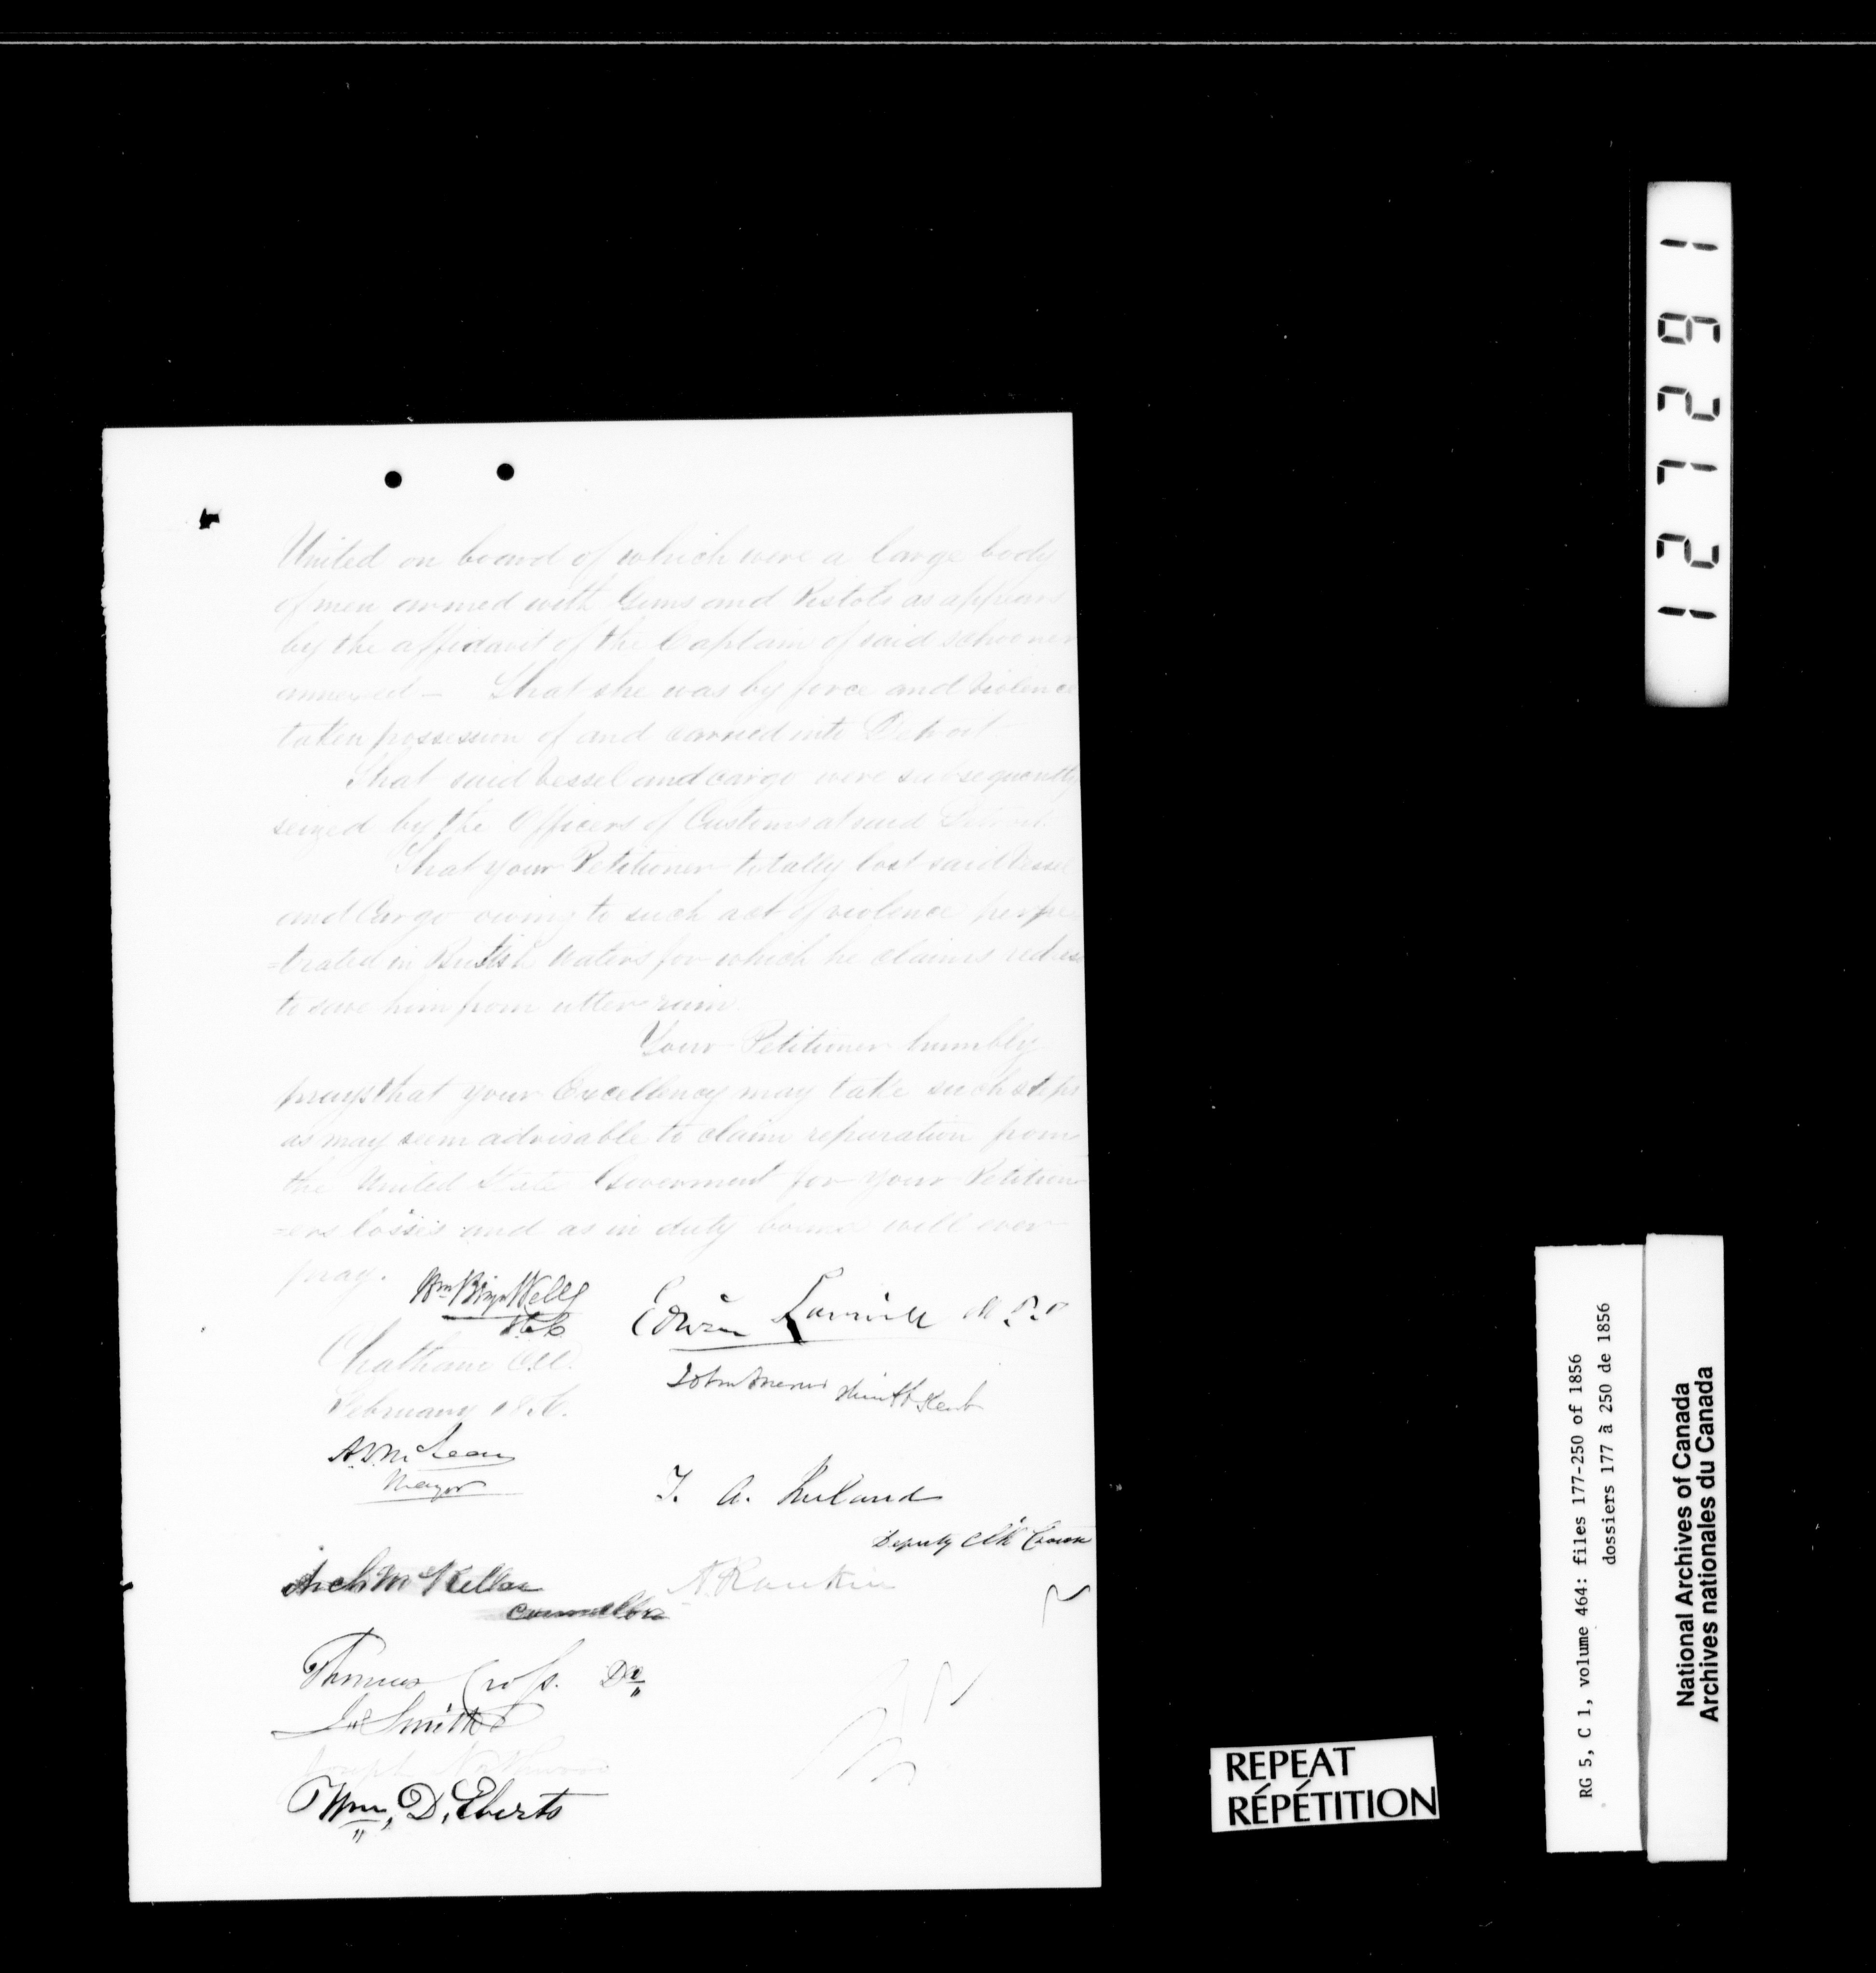 United on board of which were a large body
of men armed with Guns and Pistols as appears
by the affidavit of the Captain of said schooner
annexed — That she was by force and violence
taken possession of and carried into Detroit
That said vessel and cargo were subsequently
seized by the Officers of Customs at said Detroit
That your Petitioner totally lost said vessel
and Cargo owing to such act of violence perpe
=trated in British Waters for which he claims redress
to save him from utter ruin.
Your Petitioner humbly
prays that your Excellency may take such steps
as may seem advisable to claim reparation from
the United State Goverment for your Petition
=ers losses and as in duty bound will ever
pray.
Edwin Larwill M.P.P
Chatham C.W.
February 1856.
A. D. McLean
Mayor
T. A. Ireland
Deputy Clk Crown
Arch McKellar
Councillor
A Rankin
Thomas Cross. Do
Jas Smith
Joseph Northwood
Wm. D. Eberts
127291
REPEAT
RÉPÉTITION
RG 5, C 1, volume 464: files 177-250 of 1856
dossiers 177 à 250 de 1856
National Archives of Canada
Archives nationales du Canada